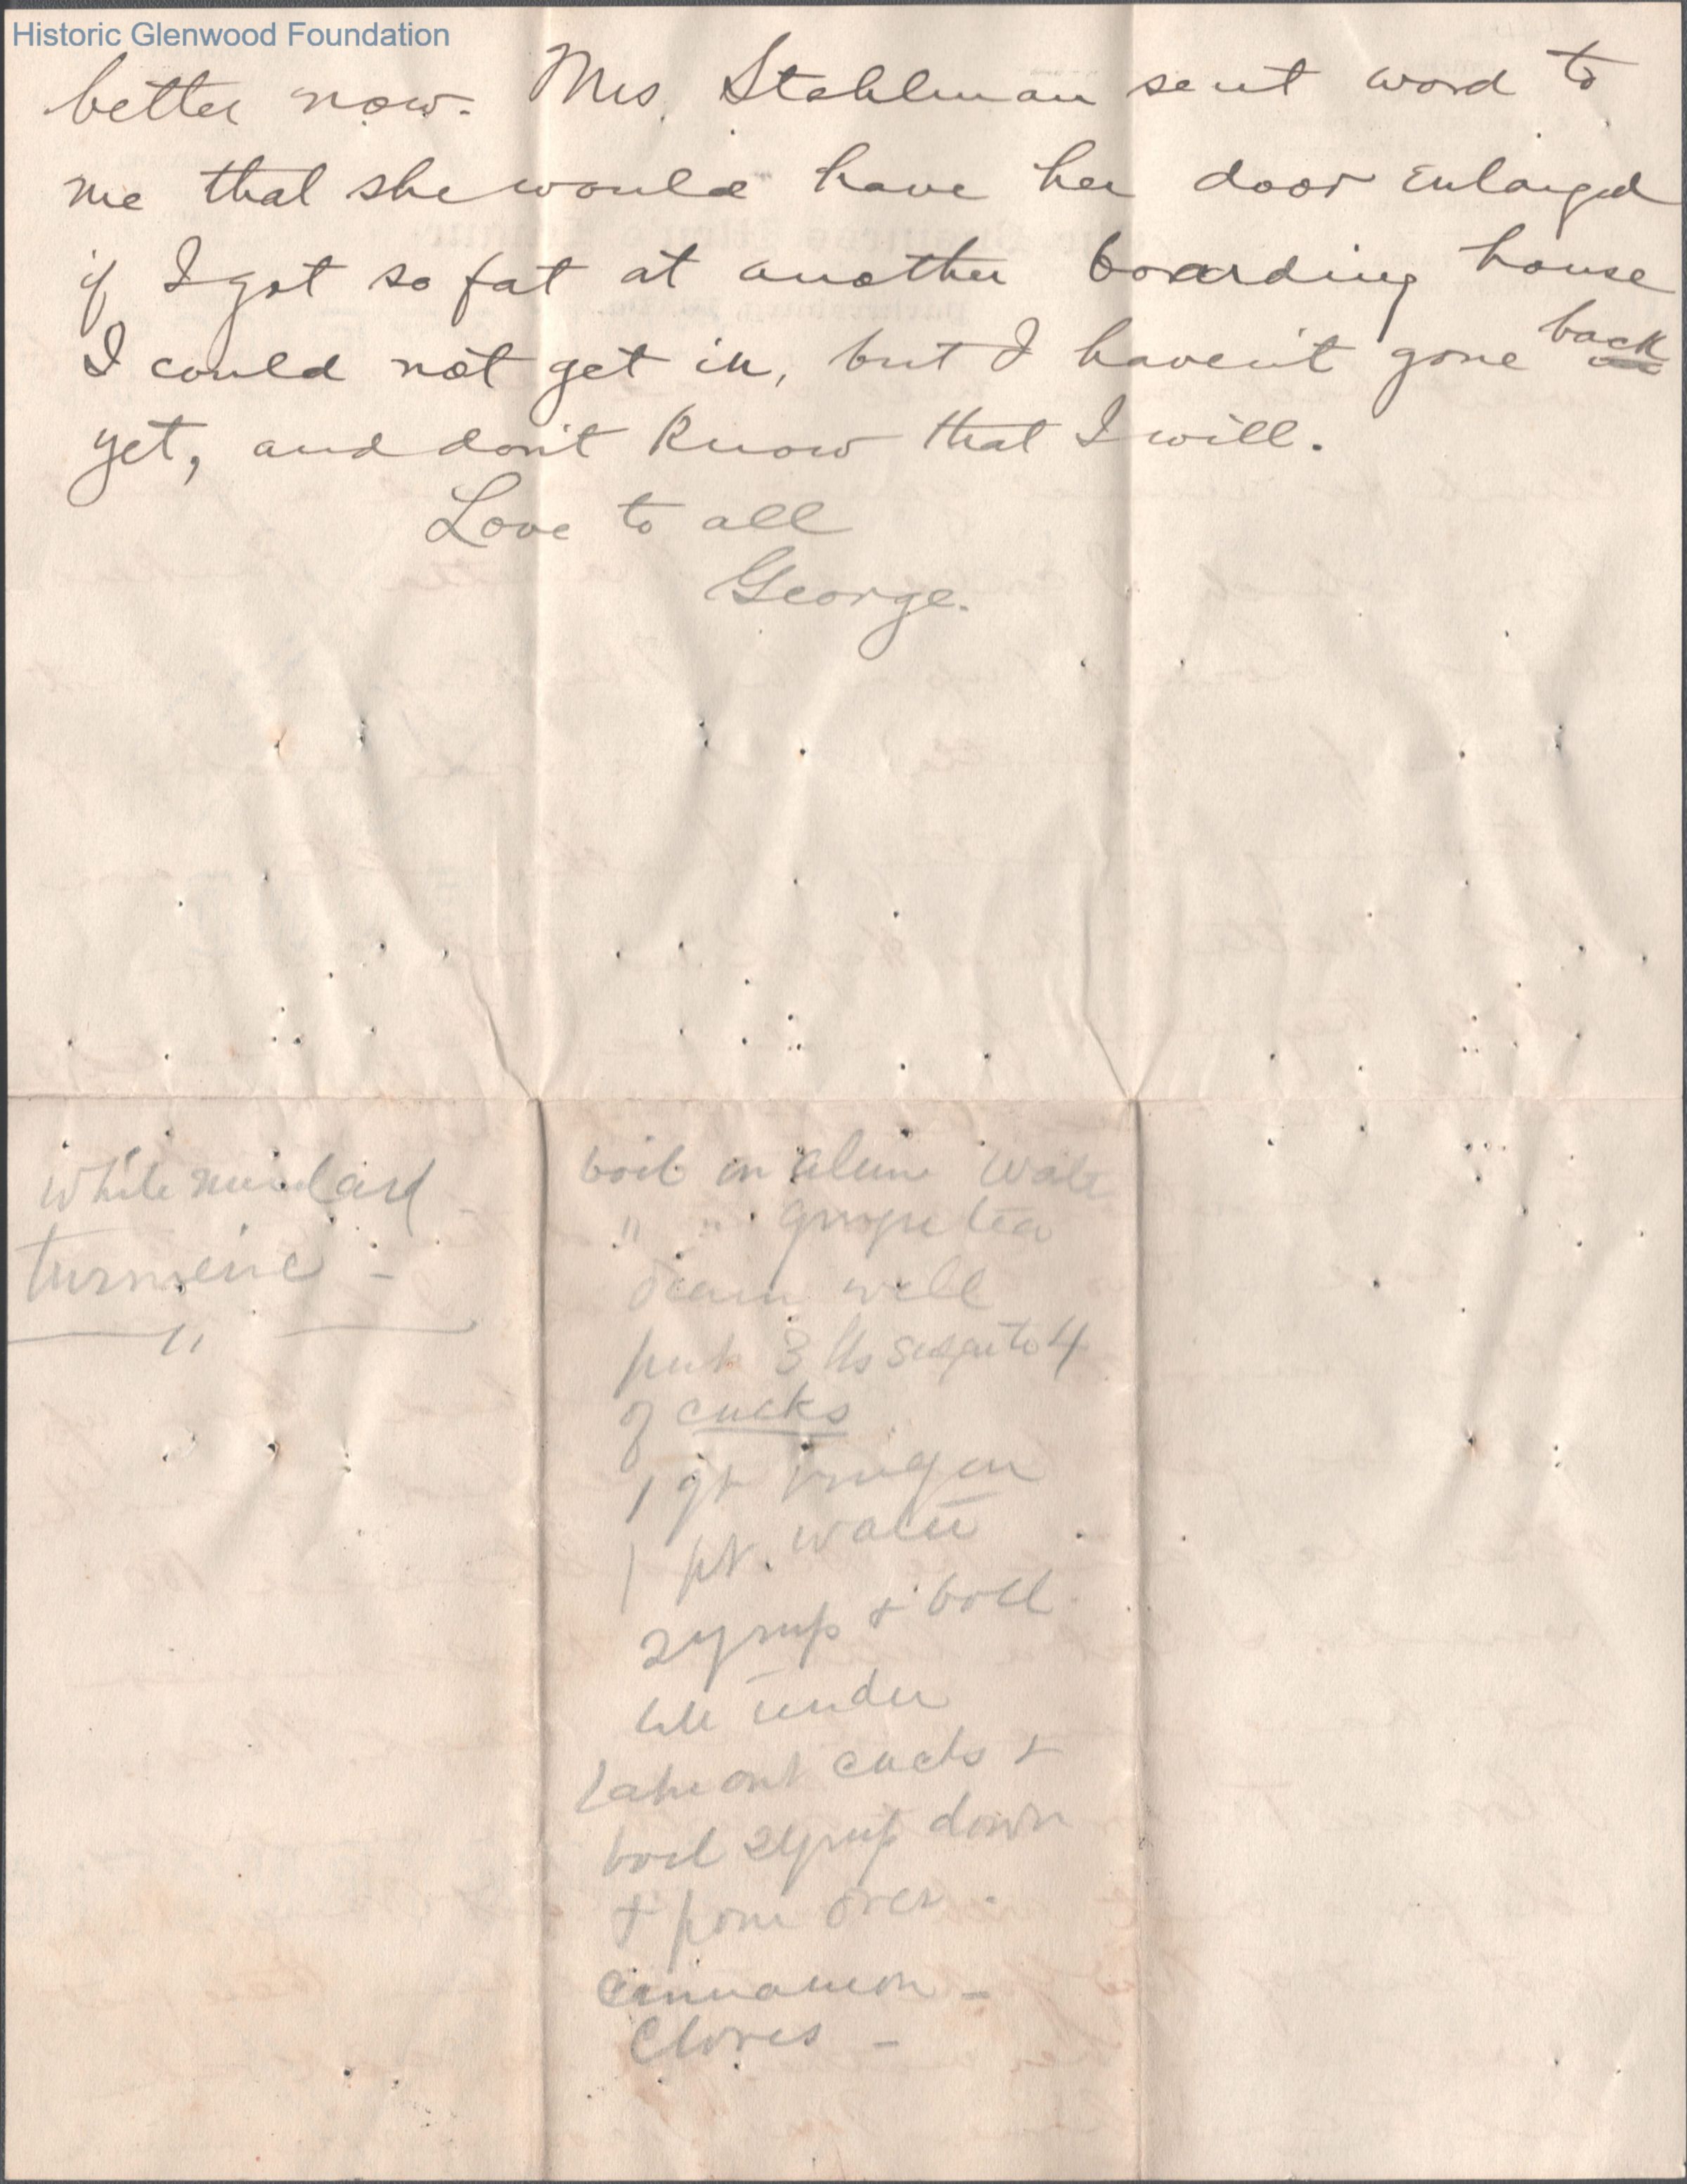 Historic Glenwood Foundation
better now. Mrs. Stahlman sent word to
me that she would have her door enlarged
if I got so fat at another boarding house
I could not get in, but I haven't gone back
yet, and don't know that I will.
Love to all
George.
White mustard -
turmeric -
"
boil in alum water
" "
well
put 3 lbs sugar to 4
of cucks
1 qt vinegar
1 pt. water
syrup & boil
till tender
take out cucks &
boil syrup down
& pour over -
Cinnamon -
Cloves -